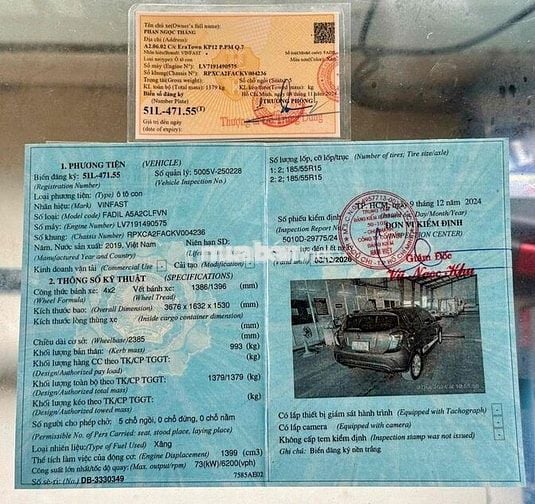 Tên chủ xe (Owner's full name):
PHAN NGỌC THẮNG
Địa chỉ (Address):
A2.06.02 C/c EraTown KP12 P.PM Q.7
Nhãn hiệu (Brand): VINFAST
Số loại (Model code): FADIL
Loại xe (Type): Ô tô con
Màu sơn (Color):
Số máy (Engine N°): LV7191490575
Số khung (Chassis N°): RPXCA2FACKV004236
Tải trọng (Gross weight):
Số chỗ ngồi (Seats): 5
KL toàn bộ (Total mass): 1379 kg
Biển số đăng ký
(Number Plate)
TRƯỞNG PHÒNG
51L-471.55(T)
Giá trị đến ngày
(date of expiry):
1. PHƯƠNG TIỆN (VEHICLE)
Biển đăng ký: 51L-471.55 Số quản lý: 5005V-250228
(Registration Number) (Vehicle Inspection No.)
Loại phương tiện: (Type) ô tô con
Nhãn hiệu: (Mark) VINFAST
Số loại: (Model code) FADIL A5A2CLFVN
Số máy: (Engine Number) LV7191490575
Số khung: (Chassis Number) RPXCA2FACKV004236
Năm, Nước sản xuất: 2019, Việt Nam Niên hạn SD:
(Manufactured Year and Country)
Kinh doanh vận tải (Commercial Use) Cải tạo (Modification)
2. THÔNG SỐ KỸ THUẬT (SPECIFICATIONS)
Công thức bánh xe: 4x2 Vết bánh xe: 1386/1396 (mm)
(Wheel Formula) (Wheel Tread)
Kích thước bao: (Overall Dimension) 3676 x 1632 x 1530 (mm)
Kích thước lòng thùng xe (Inside cargo container dimension)
(mm)
Chiều dài cơ sở: (Wheelbase) 2385 (mm)
Khối lượng bản thân: (Kerb mass) 993 (kg)
Khối lượng hàng CC theo TK/CP TGGT:
(Design/Authorized pay load) (kg)
Khối lượng toàn bộ theo TK/CP TGGT: 1379/1379 (kg)
(Design/Authorized total mass)
Khối lượng kéo theo TK/CP TGGT: (kg)
(Design/Authorized towed mass)
Số người cho phép chở: 5 chỗ ngồi, 0 chỗ đứng, 0 chỗ nằm
(Permissible No. of Pers Carried: seat, stood place, laying place)
Loại nhiên liệu: (Type of Fuel Used) Xăng
Thể tích làm việc của động cơ: (Engine Displacement) 1399 (cm3)
Công suất lớn nhất/tốc độ quay: (Max. output/rpm) 73(kW)/6200(vph)
Số sê-ri: (No.) DB-3330349
7585AE02
Số lượng lốp, cỡ lốp/trục (Number of tires; Tire size/axle)
1: 2; 185/55R15
2: 2; 185/55R15
TP. HCM, ngày 9 tháng 12 năm 2024
Số phiếu kiểm định (Issued on: Day/Month/Year)
(Inspection Report No) ĐƠN VỊ KIỂM ĐỊNH
5010D-29775/24 (INSPECTION CENTER)
Giám Đốc
Có lắp thiết bị giám sát hành trình (Equipped with Tachograph)
Có lắp camera (Equipped with camera)
Không cấp tem kiểm định (Inspection stamp was not issued)
Ghi chú: Biển đăng ký nền trắng